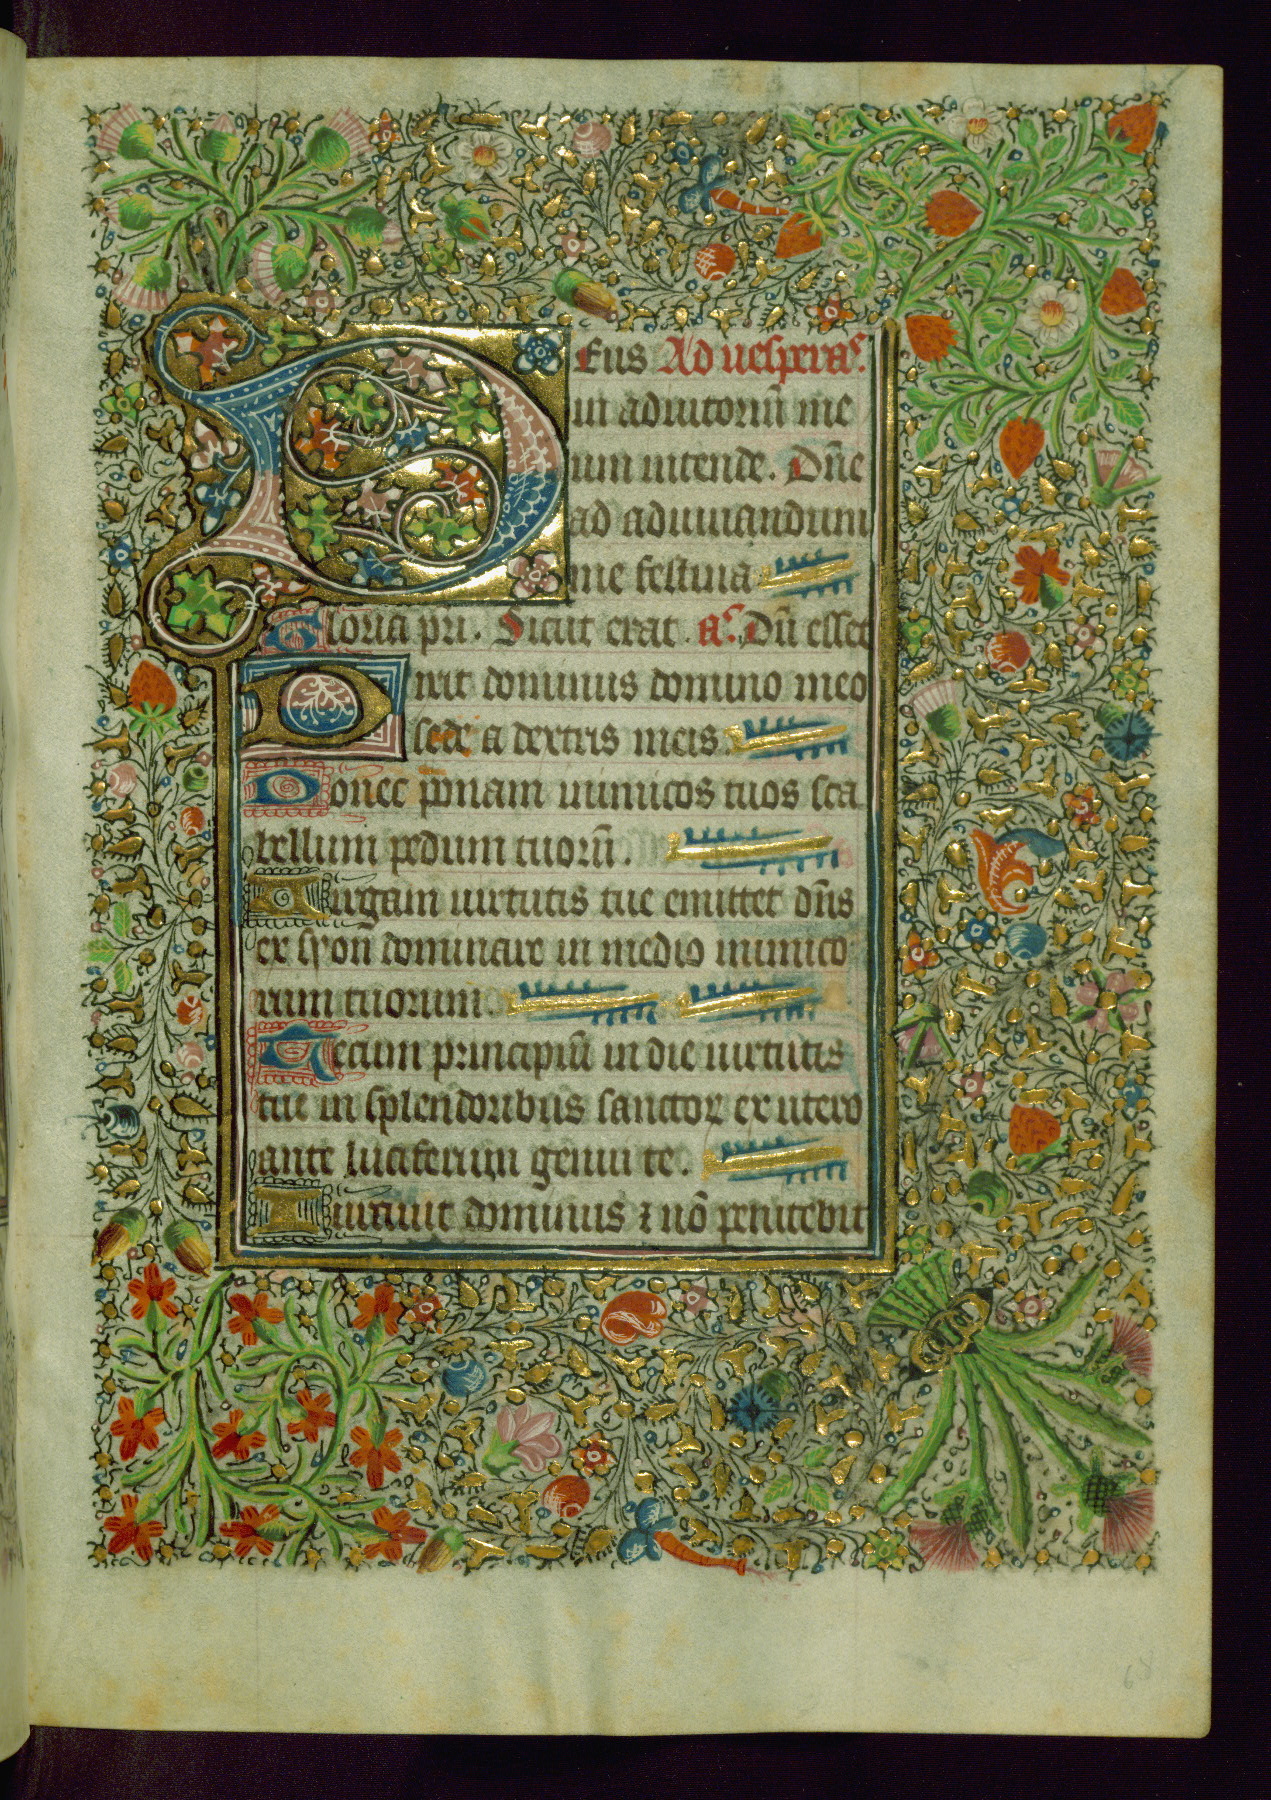 Deus Ad uesperas.
in adiutoriū me
um intende. Dn̄e
ad adiuuandum
me festina
Gloria pri. Sicut erat. a͛. Dū esset
Dixit dominus domino meo
sede a dextris meis.
Donec ponam inimicos tuos sca
bellum pedum tuorū.
Uirgam uirtutis tue emittet dn̄s
ex syon dominare in medio inimico
rum tuorum.
Tecum principiū in die uirtutis
tue in splendoribus sanctoꝝ ex utero
ante luciferum genui te.
Iurauit dominus ⁊ nō penitebit
68